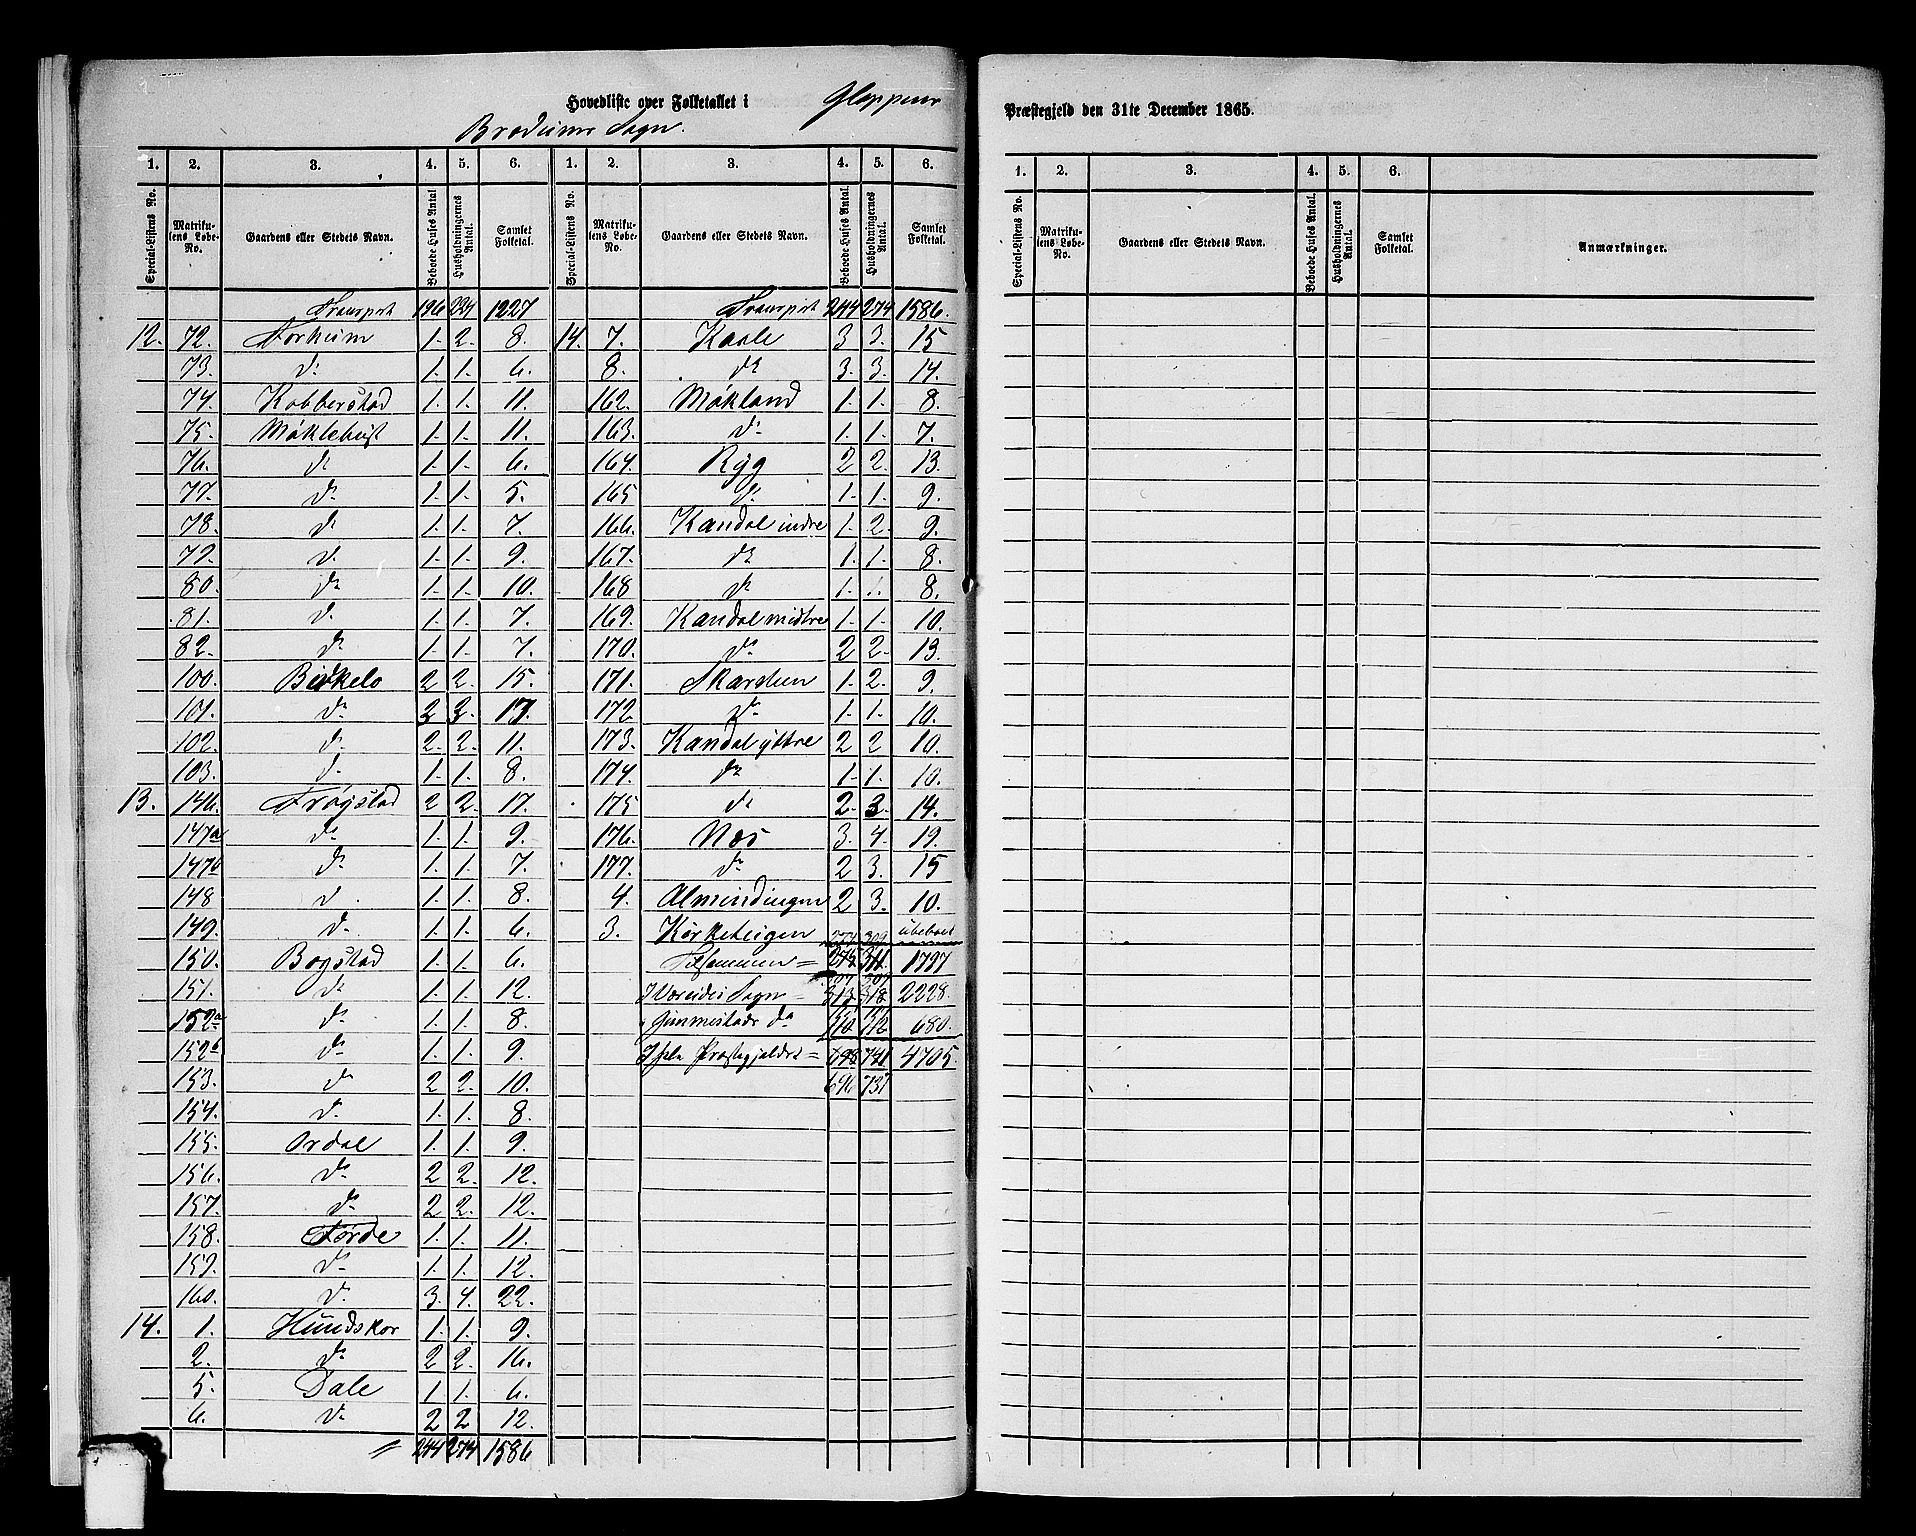 Hovedliste over Folketallet i Gloppens Præstegjeld den 31te December 1865.
Bredeims Sogn.
1. 2. 3. 4. 5. 6. 1. 2. 3. 4. 5. 6.
Special-Listens No. Matrikulens Løbe-No. Gaardens eller Stedets Navn. Beboede Huses Antal Husholdningernes Antal. Samlet Folketal. Special-Listens No. Matrikulens Løbe-No. Gaardens eller Stedets Navn. Beboede Huses Antal. Husholdningernes Antal. Samlet Folketal.
Transport 196 224 1227 Transport 244 274 1586.
12. 72. Forheim 1. 2. 8. 14. 7. Kaale 3 3. 15
73. do 1. 1. 6. 8. do 3. 3. 14.
74. Kobberstad 1. 1. 11. 162. Møkland 1. 1. 8.
75. Møklebust 1. 1. 11. 163. do 1. 1. 7.
76. do 1. 1. 6. 164. Ryg 2 2. 13.
77. do 1. 1. 5. 165 do 1. 1. 9.
78. do 1. 1. 7. 166. Kandal indre 1. 2. 9.
79. do 1. 1. 9. 167. do 1. 1. 8.
80. do 1. 1. 10. 168 do 1. 1. 8.
81. do 1. 1. 7. 169. Kandal midtre 1. 1. 10.
82. do 1. 1. 7. 170. do 2 2. 13.
100. Birkelo 2 2. 15. 171. Skarsteen 1. 2. 9.
101. do 17. 172. do 1. 1. 10.
102. do 2. 2. 11. 173. Kandal yttre 2 2 10.
103. do 1. 1. 8. 174. do 1. 1. 10.
13. 146. Frøystad 2 2. 17. 175 do 2. 3. 14.
147a do 1. 1. 9. 176. Næs 3. 4. 19.
147b do 1. 1. 7. 177. do 2 3. 15
148 do 1. 1. 8. 4. Almindingen 2 3. 10.
149. do 1. 1. 6. 3. Kirketeigen 274 309 ubeboet
150. Bogstad 1. 1. 6. Tilsammen = 275 311 1797
151. do 1. 1. 12. I Vereides Sogn = 313 318 2228.
152a do 1. 1. 8. " Gimmestads do 110 112 680.
152b do 1. 1. 9. I hele Præstegjeldet = 698 741 4705.
153. do 2 2. 10. 696 737
154. do 1. 1. 8.
155. Ordal 1. 1. 9.
156. do 2 2. 12.
157. do 2 2. 12.
158. Førde 1. 1. 11.
159. do 1. 1. 12.
160. do 3. 4. 22.
14. 1. Hundskor 1. 1. 9.
2. do 2 2. 16.
5. Dale 1. 1. 6.
6. do 2 2 12.
= 244 274 1586
1. 2. 3. 4. 5. 6.
Special-Listens No. Matrikulens Løbe-No. Gaardens eller Stedets Navn. Beboede Huses Antal. Husholdningernes Antal. Samlet Folketal. Anmærkninger.